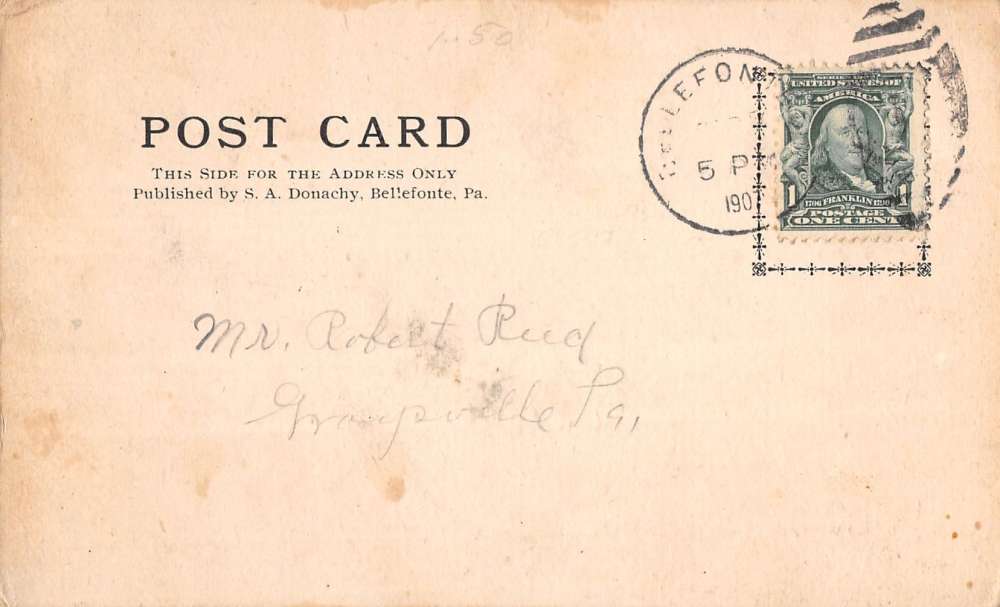 1.50
POST CARD
THIS SIDE FOR THE ADDRESS ONLY
Published by S. A. Donachy, Bellefonte, Pa.
BELLEFONT
5 P
190
SERIES 1902
UNITED STATES OF
AMERICA
1 1706 FRANKLIN 1790 1
POSTAGE
ONE CENT
Mr. Robert Reed
Graysville Pa.